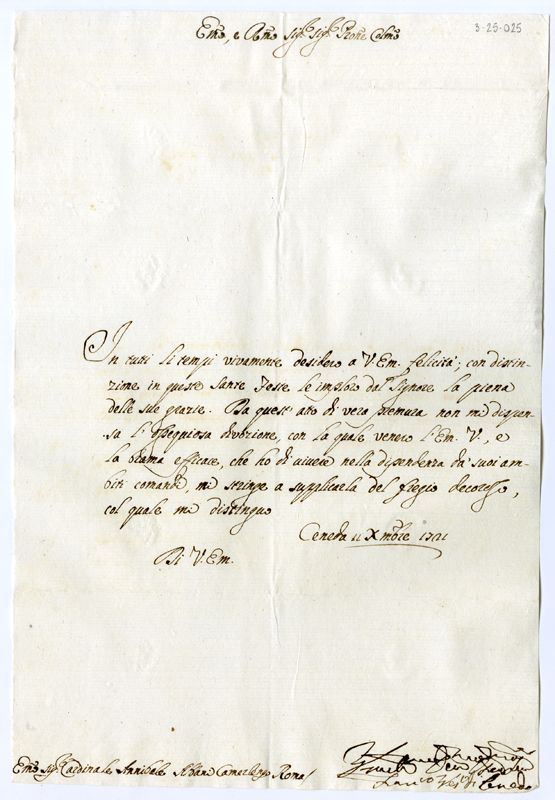 3-25-025
Emo, e Rmo Sigr. Sigr. Prone Colmo
In tutti li tempi vivamente desidero a V. Em. felicità; con distin-
zione in queste Sante Feste le imploro dal Signore la piena
delle sue grazie. Da quest' atto di vera premura non mi dispen-
sa l'ossequiosa divozione, con la quale venero l'Em. V., e
la brama efficace, che ho di vivere nella dipendenza da' suoi am-
biti comandi, mi stringe a supplicarla del fregio decoroso,
col quale mi distinguo
Ceneda 11 Xmbre 1721
Di V. Em.
Emo Sigr. Cardinale Annibale Albani Camerlengo Roma/
Ceneda